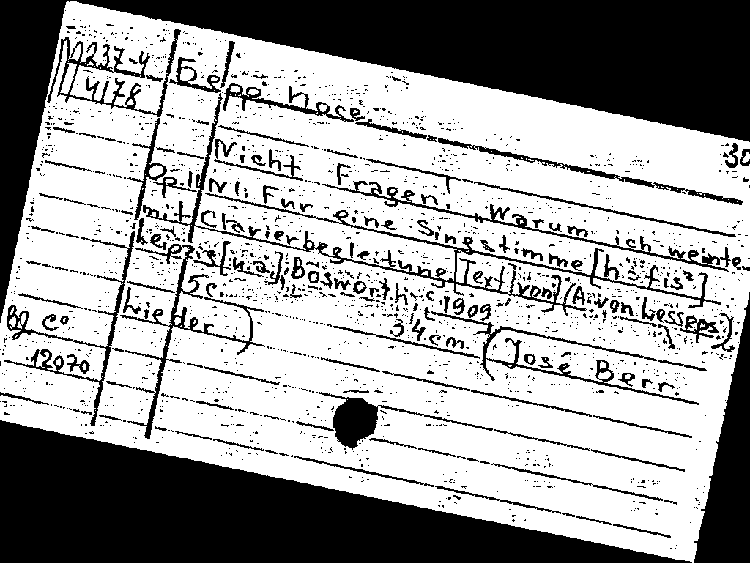 М 237-4
4178
Берр Хосе.
30
Nicht fragen! „Warum ich weinte...
Op. 11 N 1. Für eine Singstimme [h - fis²]
mit Clavierbegleitung. [Text] von (A. von Lesseps.)
Leipzig [u. a.], Bosworth, c 1909.
5 с. 34 cm. (José Berr.
Lieder.)
Bg C°
12070